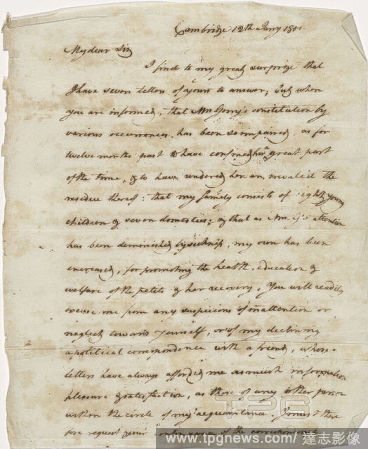 Cambridge 12th Jany 1801
My dear Sir
I find to my great surprize that
I have seven letters of yours to answer, but when
you are informed, that Mrs Gerry's constitution by
various occurrences has been so impaired, as for
twelve months past to have confined her great part
of the time, & to have rendered her an invalid the
residue thereof: that my family consists of eight young
children & seven domestics; & that as Mrs G's attention
has been diminished by sickness, my own has been
encreased, for promoting the health, education &
welfare of the & her recovery, You will readily
excuse me from any suspicions of inattention or
neglect towards yourself, or of my declining
a political correspondence with a friend, whose
letters have always afforded me as much information
pleasure & satisfaction, as those of any other person
within the circle of my acquaintance I must there
fore request your of the correspondence
www.tpgnews.com / 達志影像